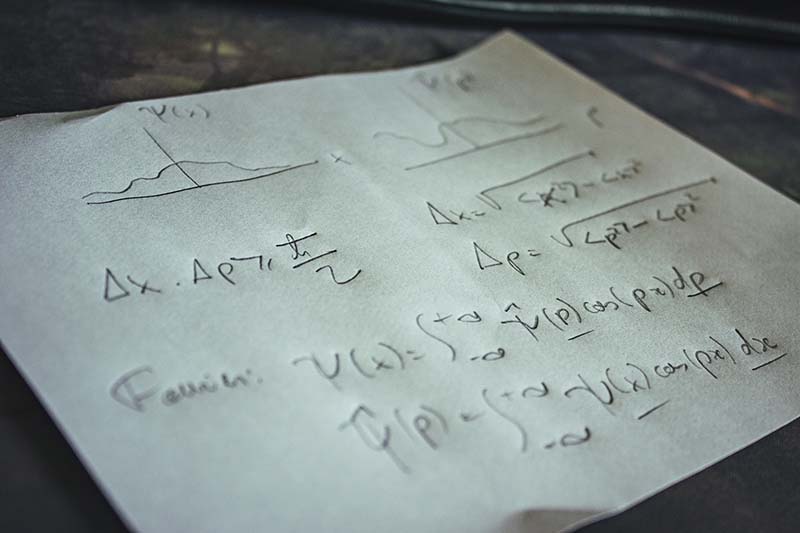 ψ(x)
x
p
Δx = √<x²> - <x>²
Δx . Δp ≥ ħ/2
Δp = √<p²> - <p>²
Fourier: ψ(x) = ∫_{-∞}^{+∞} ψ̂(p) cos(px) dp
ψ̂(p) = ∫_{-∞}^{+∞} ψ(x) cos(px) dx